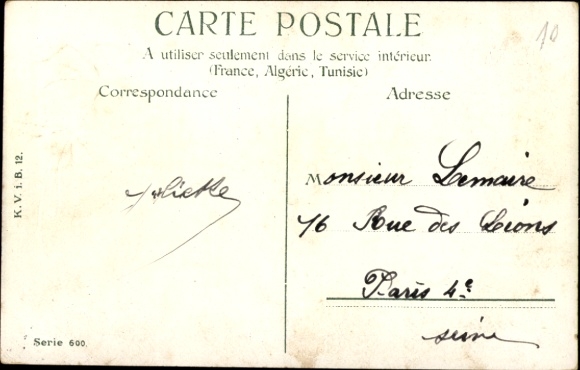 CARTE POSTALE
A utiliser seulement dans le service intérieur.
(France, Algérie, Tunisie)
Correspondance
Adresse
10
K.V.i.B. 12.
Juliette
Monsieur Lemaire
16 Rue des Lions
Paris 4e
Seine
Serie 600.